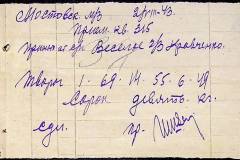 Мостовск м/з 2/VIII-43.
Прием. кв. 315
Принято от ср. Веселое г/з Кравченко.
Творог 1-69-14-55-6-49
Сорок девять кг.
Сдл. пр.